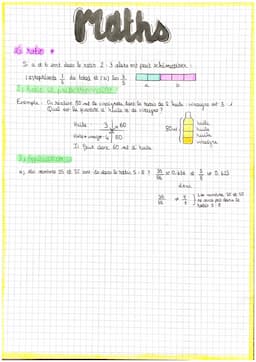 Maths
Si a et b sont dans le ratio 2 : 3 alors on peut schématiser :
(a) représente 2/5 du total et (b) les 3/5
a b
2) Ratio et proportionnalité
Exemple : On réalise 80 ml de vinaigrette dans le ratio de huile : vinaigre est 3 : 1
Quel est la quantité d'huile et de vinaigre ?
Huile 3 60
Huile + vinaigre 4 80
Il faut donc 60 ml d'huile
80ml
huile
huile
huile
vinaigre
3) Application
a) les nombres 35 et 55 sont dans le ratio 5 : 8 ?
35/55 ≈ 0,636 et 5/8 ≈ 0,625
donc
35/55 ≠ 5/8
Les nombres 35 et 55
ne sont pas dans le
ratio 5 : 8